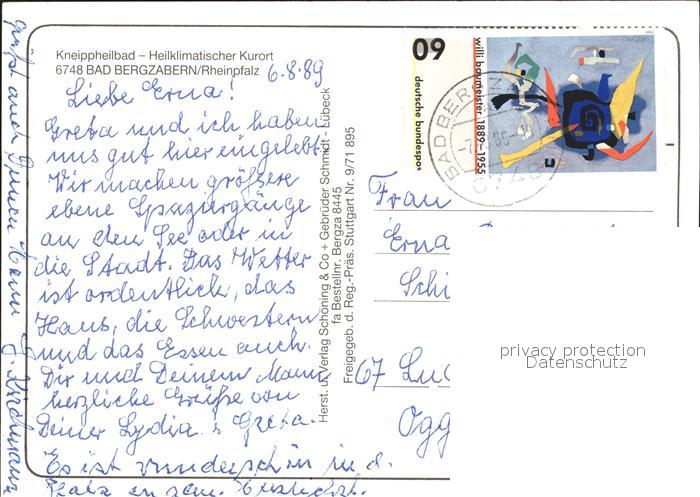 Kneippheilbad – Heilklimatischer Kurort
6748 BAD BERGZABERN/Rheinpfalz
6.8.89
Liebe Erna!
Greta und ich haben
uns gut hier eingelebt.
Wir machen größere
ebene Spaziergänge
an den See oder in
die Stadt. Das Wetter
ist ordentlich, das
Haus, die Schwestern
und das Essen auch.
Dir und Deinem Mann
herzliche Grüße von
Deiner Lydia u Greta.
Es ist wunderschön in d.
grüßt auch Deinen Mann
Herst. u. Verlag Schöning & Co + Gebrüder Schmidt - Lübeck
fa Bestellnr. Bergza 8445
Freigegeb. d. Reg.-Präs. Stuttgart Nr. 9/71 895
60
deutsche bundespos
willi baumeister 1889-1955
BAD BERGZ
6748
Frau
Erna
Schi
67 Lu
Ogg
privacy protection
Datenschutz